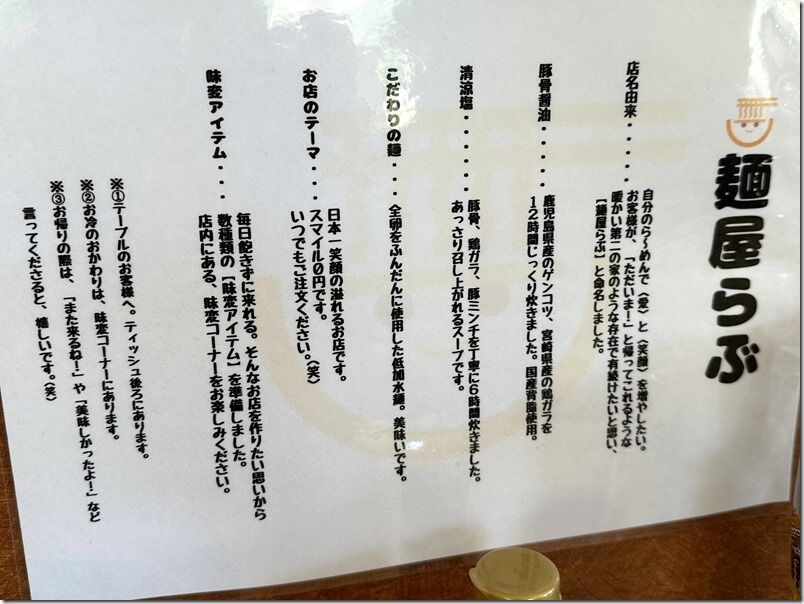 麺屋らぶ
店名由来・・・・・
自分のら〜めんで〈愛〉と〈笑顔〉を増やしたい。
お客様が、「ただいま！」と帰ってこれるような
暖かい第二の家のような存在で有続けたいと思い、
【麺屋らぶ】と命名しました。
豚骨醤油・・・・・
鹿児島県産のゲンコツ、宮崎県産の鶏ガラを
12時間じっくり炊きました。国産背脂使用。
清涼塩・・・・・・
豚骨、鶏ガラ、豚ミンチを丁寧に6時間炊きました。
あっさり召し上がれるスープです。
こだわりの麺・・・
全卵をふんだんに使用した低加水麺。美味いです。
お店のテーマ・・・
日本一笑顔の溢れるお店です。
スマイル0円です。
いつでもご注文ください。（笑）
味変アイテム・・・
毎日飽きずに来れる。そんなお店を作りたい思いから
数種類の【味変アイテム】を準備しました。
店内にある、味変コーナーをお楽しみください。
※①テーブルのお客様へ。ティッシュ後ろにあります。
※②お冷のおかわりは、味変コーナーにあります。
※③お帰りの際は、「また来るね！」や「美味しかったよ！」など
言ってくださると、嬉しいです。（笑）